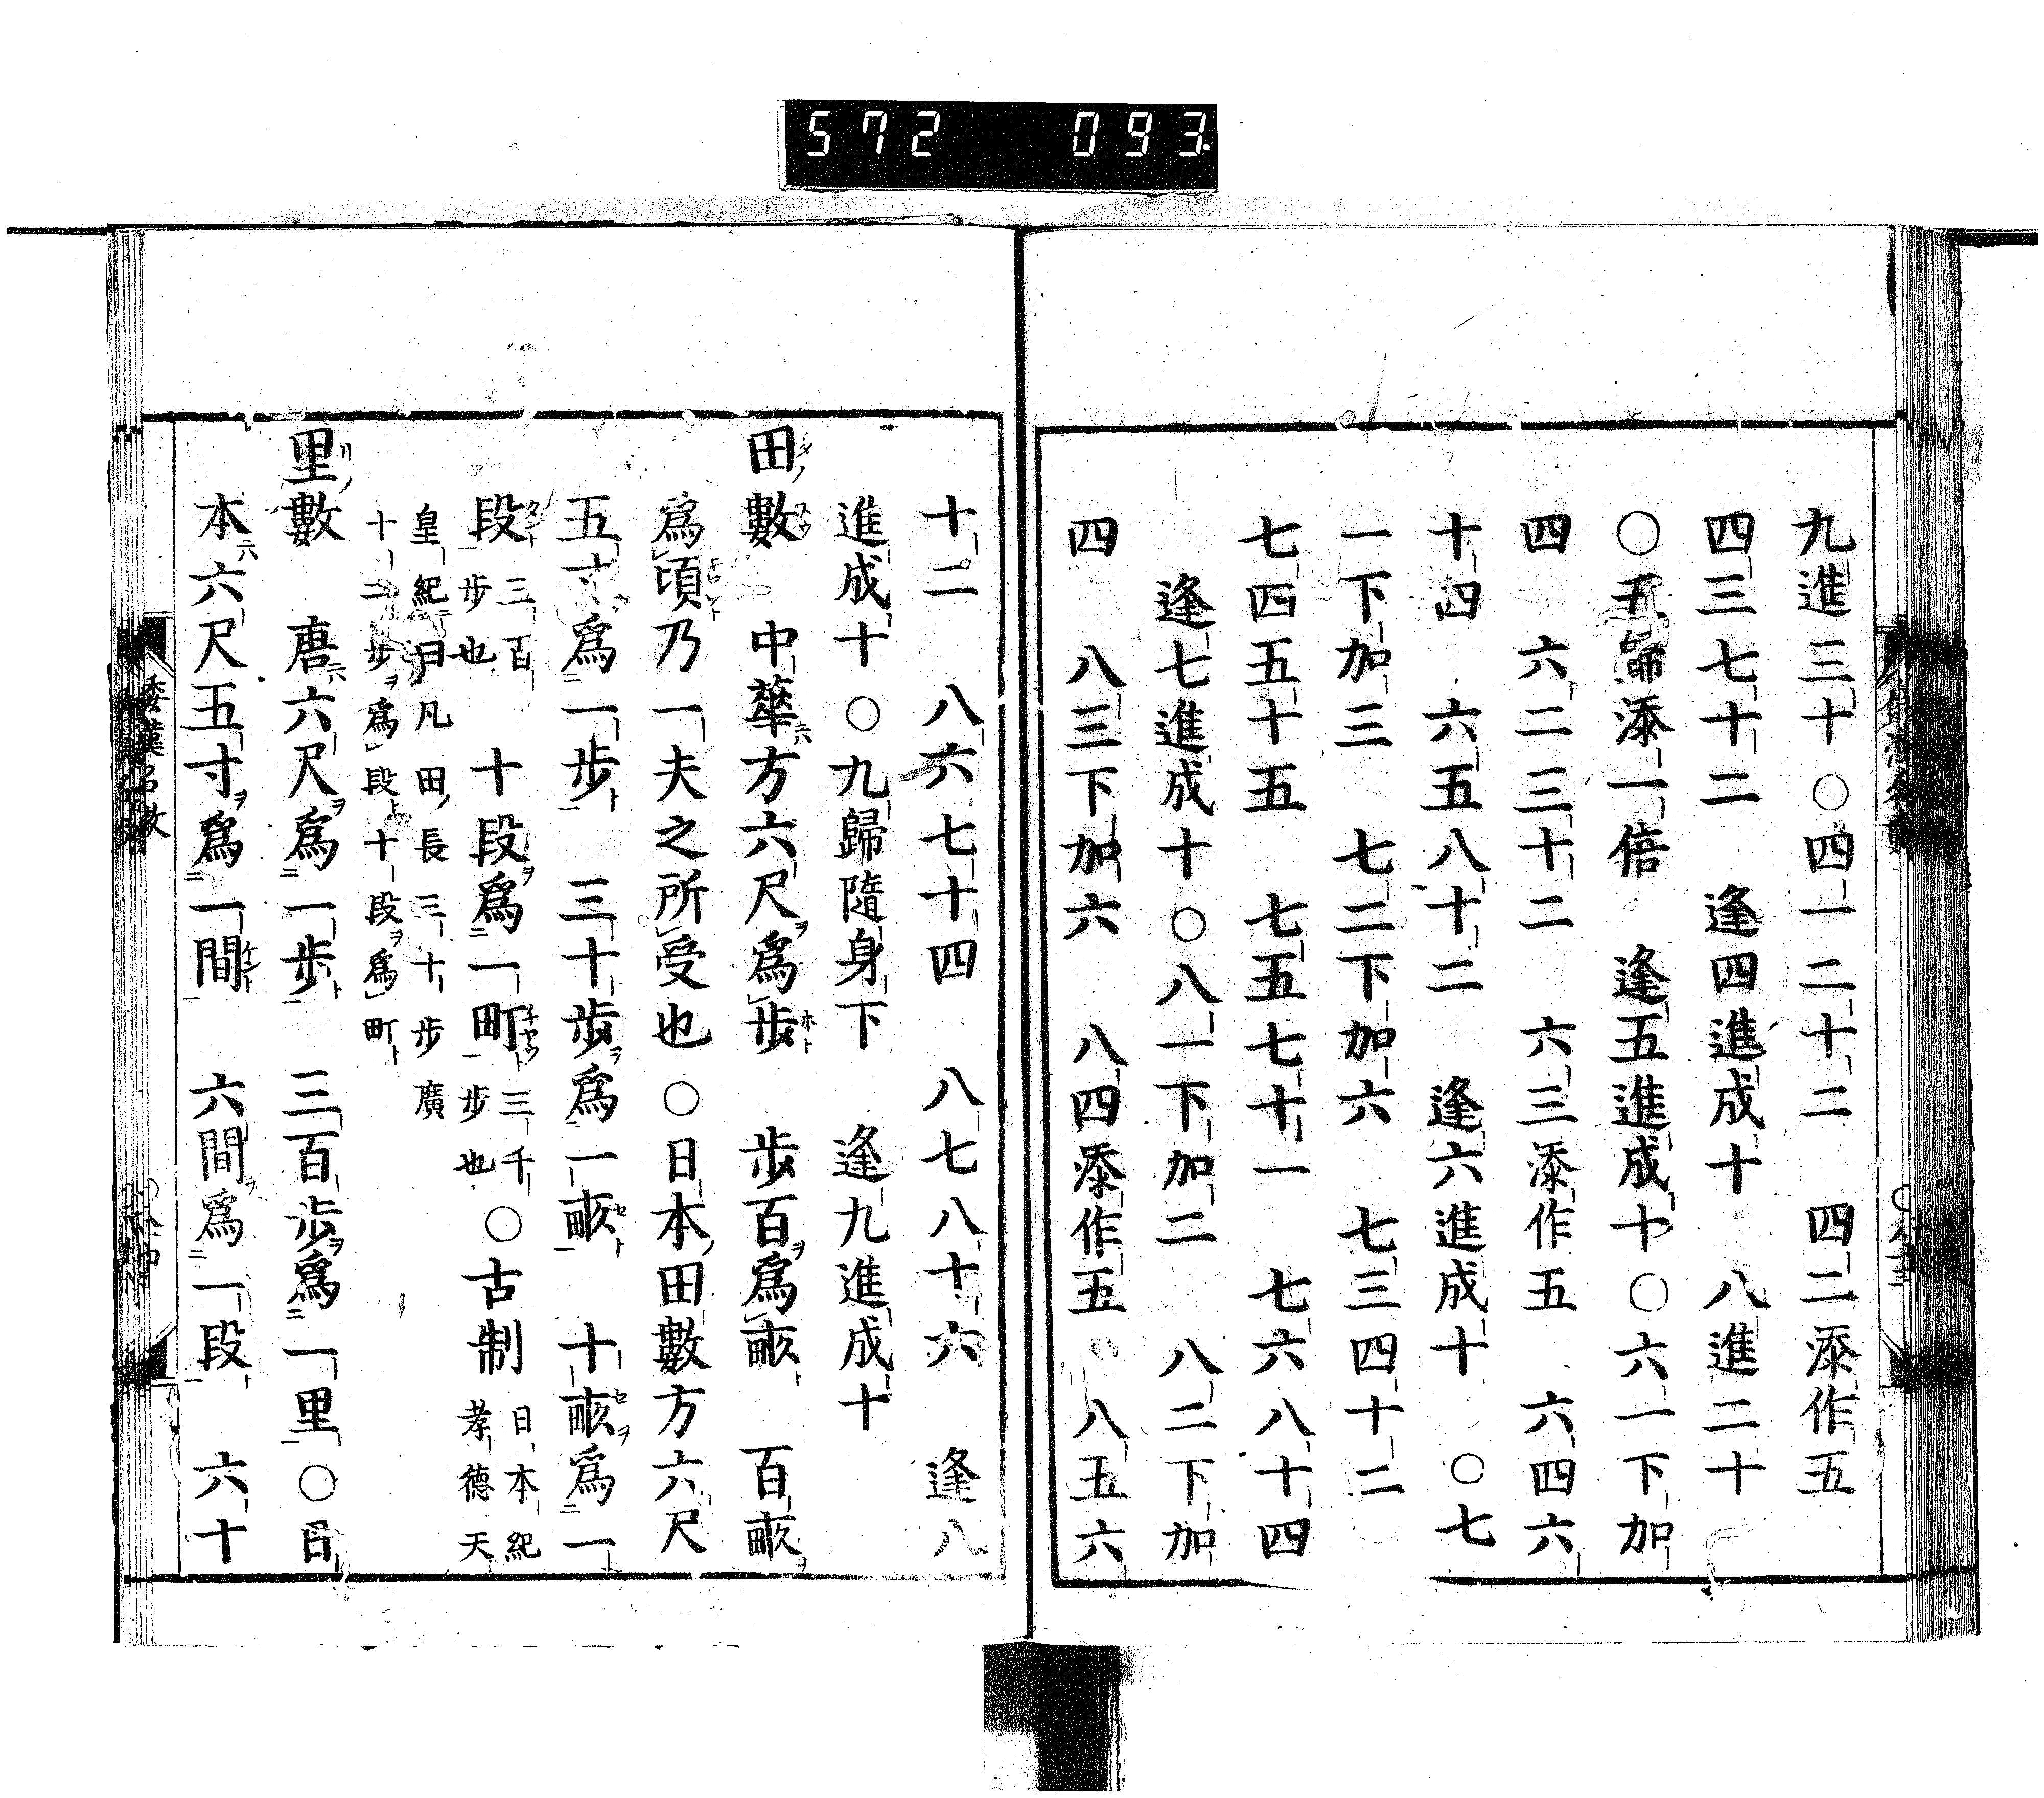 572 093
九進三十○四一二十二 四二添作五
四三七十二 逢四進成十 八進二十
○五歸添一倍 逢五進成十○六一下加
四 六二三十二 六三添作五 六四六
十四 六五八十二 逢六進成十 ○七
一下加三 七二下加六 七三四十二
七四五十五 七五七十一 七六八十四
逢七進成十○八一下加二 八二下加
四 八三下加六 八四添作五 八五六
十二 八六七十四 八七八十六 逢八
進成十○九歸隨身下 逢九進成十
田數 中華方六尺爲歩 歩百爲畝 百畝
爲頃乃一夫之所受也○日本田數方六尺
五寸爲一歩 三十歩爲一畝 十畝爲一
段 三百歩也 十段爲一町 三千歩也 ○古制 日本紀孝德天
皇紀曰凡田長三十歩廣
十二歩爲段十段爲町
里數 唐六尺爲一歩 三百歩爲一里○日
本六尺五寸爲一間 六間爲一段 六十